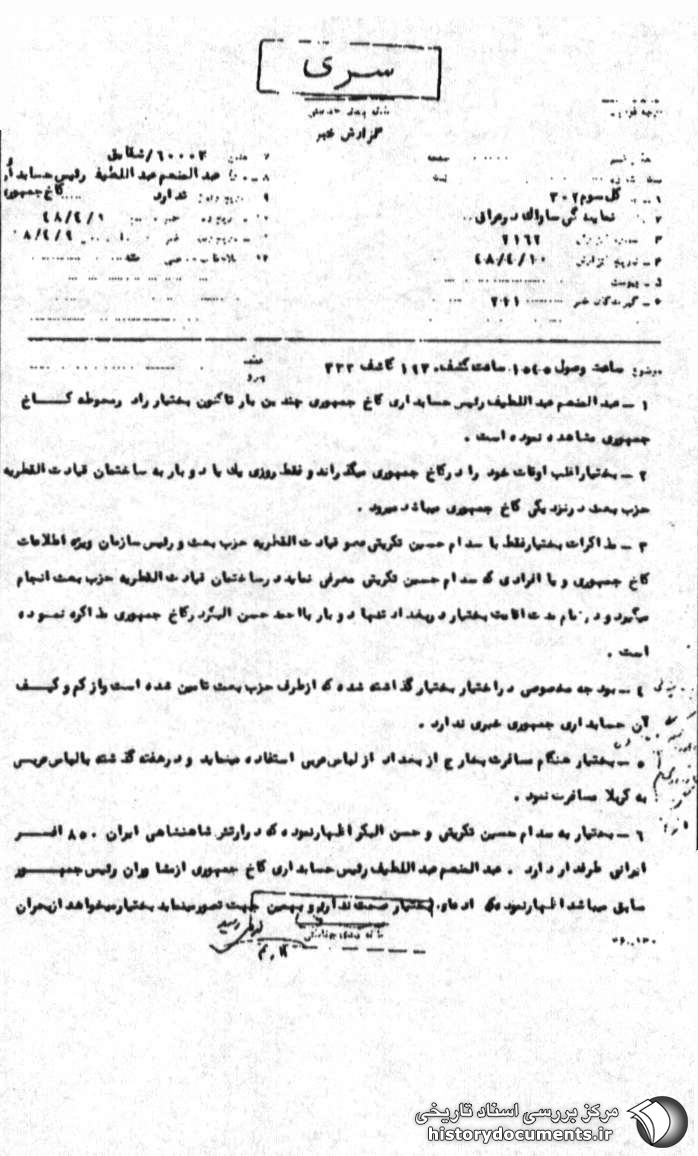 سری
گزارش خبر
۱ - کل سوم ۳۰۲
۲ نمایندگی ساواک در عراق
۳ ۲۱۶۲
۴ - تاریخ گزارش ۴۸/٤/۱۰
۵ - پیوست
۶ - گیرندگان خبر ۲۶۱
۷ ۶۰۰۰۲/شقایق
۸ عبدالمنعم عبداللطیف رئیس حسابداری
کاخ جمهوری
۹ ندارد
۱۰ ۴۸/٤/۹
خبر ۴۸/٤/۹
موضوع ساعت وصول ۱۵۴۵ ساعت کشف ۱۹۳۰ کاشف ۳۳۲
۱ - عبدالمنعم عبداللطیف رئیس حسابداری کاخ جمهوری چندین بار تاکنون بختیار را در محوطه کاخ
جمهوری مشاهده نموده است .
۲ - بختیار اغلب اوقات خود را در کاخ جمهوری میگذراند و فقط روزی یک یا دو بار به ساختمان قیادت القطریه
حزب بعث در نزدیکی کاخ جمهوری میباشد میرود .
۳ - مذاکرات بختیار فقط با صدام حسین تکریتی عضو قیادت القطریه حزب بعث و رئیس سازمان ویژه اطلاعات
کاخ جمهوری و یا افرادی که صدام حسین تکریتی معرفی نماید در ساختمان قیادت القطریه حزب بعث انجام
میگیرد و در تمام مدت اقامت بختیار در بغداد تنها دو بار با احمد حسن البکر در کاخ جمهوری مذاکره نموده
است .
٤ - بودجه مخصوصی در اختیار بختیار گذاشته شده که از طرف حزب بعث تامین شده است و از کم و کیف
آن حسابداری جمهوری خبری ندارد .
۵ - بختیار هنگام مسافرت بخارج از بغداد از لباس عربی استفاده مینماید و در هفته گذشته با لباس عربی
به کربلا مسافرت نمود .
۶ - بختیار به صدام حسین تکریتی و حسن البکر اظهار نموده که در ارتش شاهنشاهی ایران ۸۵۰ افسر
ایرانی طرفدار دارد . عبدالمنعم عبداللطیف رئیس حسابداری کاخ جمهوری از مشاوران رئیس جمهور
سابق میباشد اظهار نموده که ادعای بختیار صحت ندارد و بهمین جهت تصور مینماید بختیار میخواهد از بحران
مرکز بررسی اسناد تاریخی
historydocuments.ir